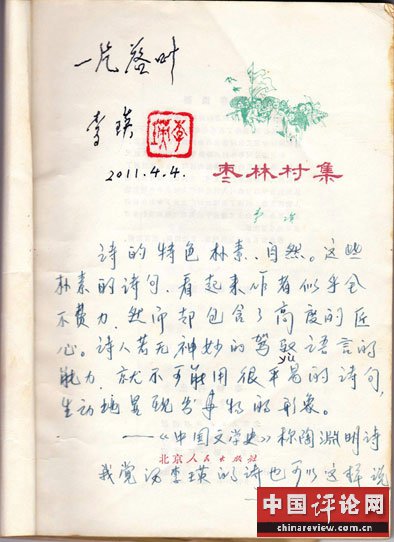 一片落叶
李瑛
李瑛
2011.4.4.
枣林村集
李瑛
诗的特色朴素、自然。这些
朴素的诗句,看起来作者似乎全
不费力,然而却包含了高度的匠
心。诗人若无神妙的驾驭语言的
yù
能力,就不可能用很平易的诗句,
生动地呈现出事物的形象。
——《中国文学史》称陶渊明诗
北京人民出版社
我觉得李瑛的诗也可以这样说
中国评论网
chinareview.com